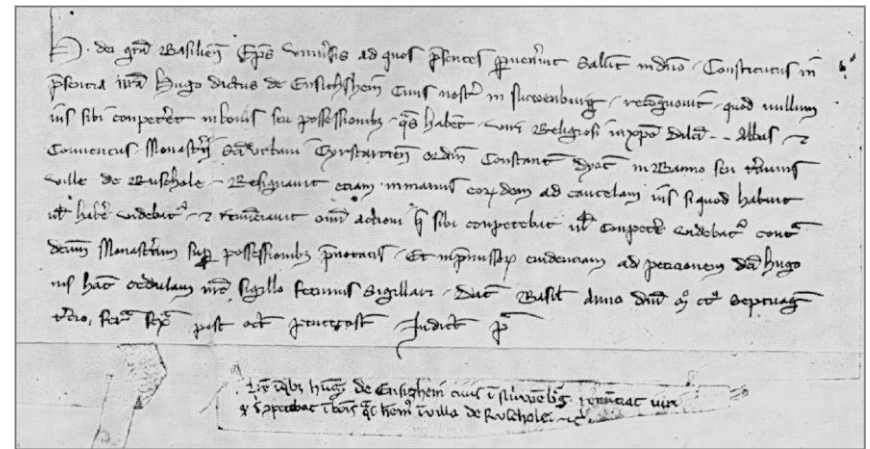 H. dei gra Basilien Eps vniuersis ad quos psentes puenerint Salute in dno. Constitutus in
psentia nra Hugo dictus de Ensichshein Ciuis noster in Nuwenburg, recognouit, quod nullum
ius sibi conpeteret in bonis seu possessionibz, qs habent viri Religiosi in xpo Dilci .. Abbas et
Conuentus Monasterij Sci Vrbani Cysterciens ordin Constant Dyoc in Banno seu terminis
ville de Ruschole. Resignauit eciam in manus eorundem ad cautelam ius si quod habuit
vel habere videbatur, et renunciauit omni actioni que sibi conpetebat vel conpetere videbatur contra
dictum Monasterium super possessionibz prenotatis. Et in premissorum euidenciam ad peticionem dci Hugo
nis hanc cedulam nro sigillo fecimus Sigillari. Dat Basil Anno Dni M CC Septuag
tercio, feria sexta post oct Pentecost. Indict pa
hugo de Ensichein ciuis i Nuwenburg renunciat iuri
qd sibi petebat i bonis que hemus i villa de Ruschole